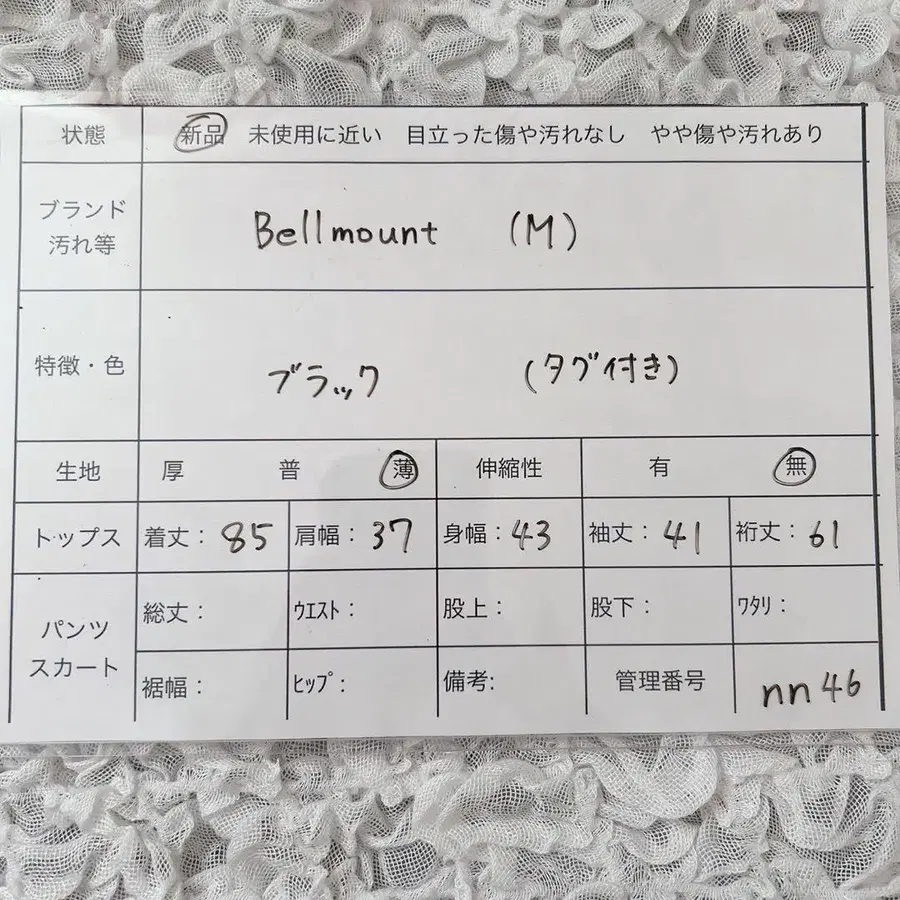 状態 新品 未使用に近い 目立った傷や汚れなし やや傷や汚れあり
ブランド
汚れ等 Bellmount (M)
特徴・色 ブラック (タグ付き)
生地 厚 普 薄 伸縮性 有 無
トップス 着丈: 85 肩幅: 37 身幅: 43 袖丈: 41 裄丈: 61
パンツ
スカート
総丈: ウエスト: 股上: 股下: ワタリ:
裾幅: ヒップ: 備考: 管理番号 nn46